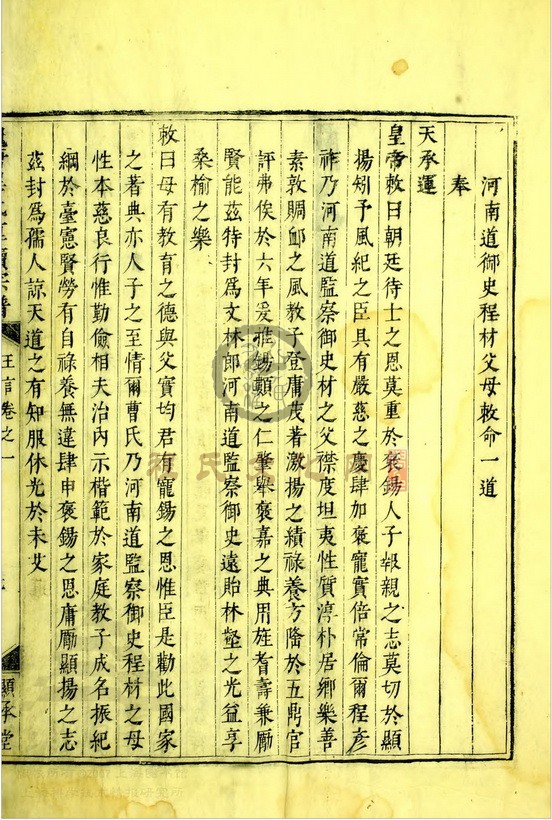 河南道御史程材父母敕命一道
奉
天承運
皇帝敕曰朝廷待士之恩莫重於褒錫人子報親之志莫切於顯
揚矧予風紀之臣具有嚴慈之慶肆加褒寵實倍常倫爾程彥
祚乃河南道監察御史材之父襟度坦夷性質淳朴居鄉樂善
素敦賙卹之風教子登庸茂著激揚之績祿養方隆於五鼎官
評弗俟於六年爰推錫類之仁肇舉褒嘉之典用旌耆壽兼勵
賢能茲特封為文林郎河南道監察御史遠貽林壑之光益享
桑榆之樂
敕曰母有教育之德與父實均君有寵錫之恩惟臣是勸此國家
之著典亦人子之至情爾曹氏乃河南道監察御史程材之母
性本慈良行惟勤儉相夫治內示楷範於家庭教子成名振紀
綱於臺憲賢勞有自祿養無違肆申褒錫之恩庸勵顯揚之志
茲封為孺人諒天道之有知服休光於未艾
宗譜
王言卷之一
顯承堂